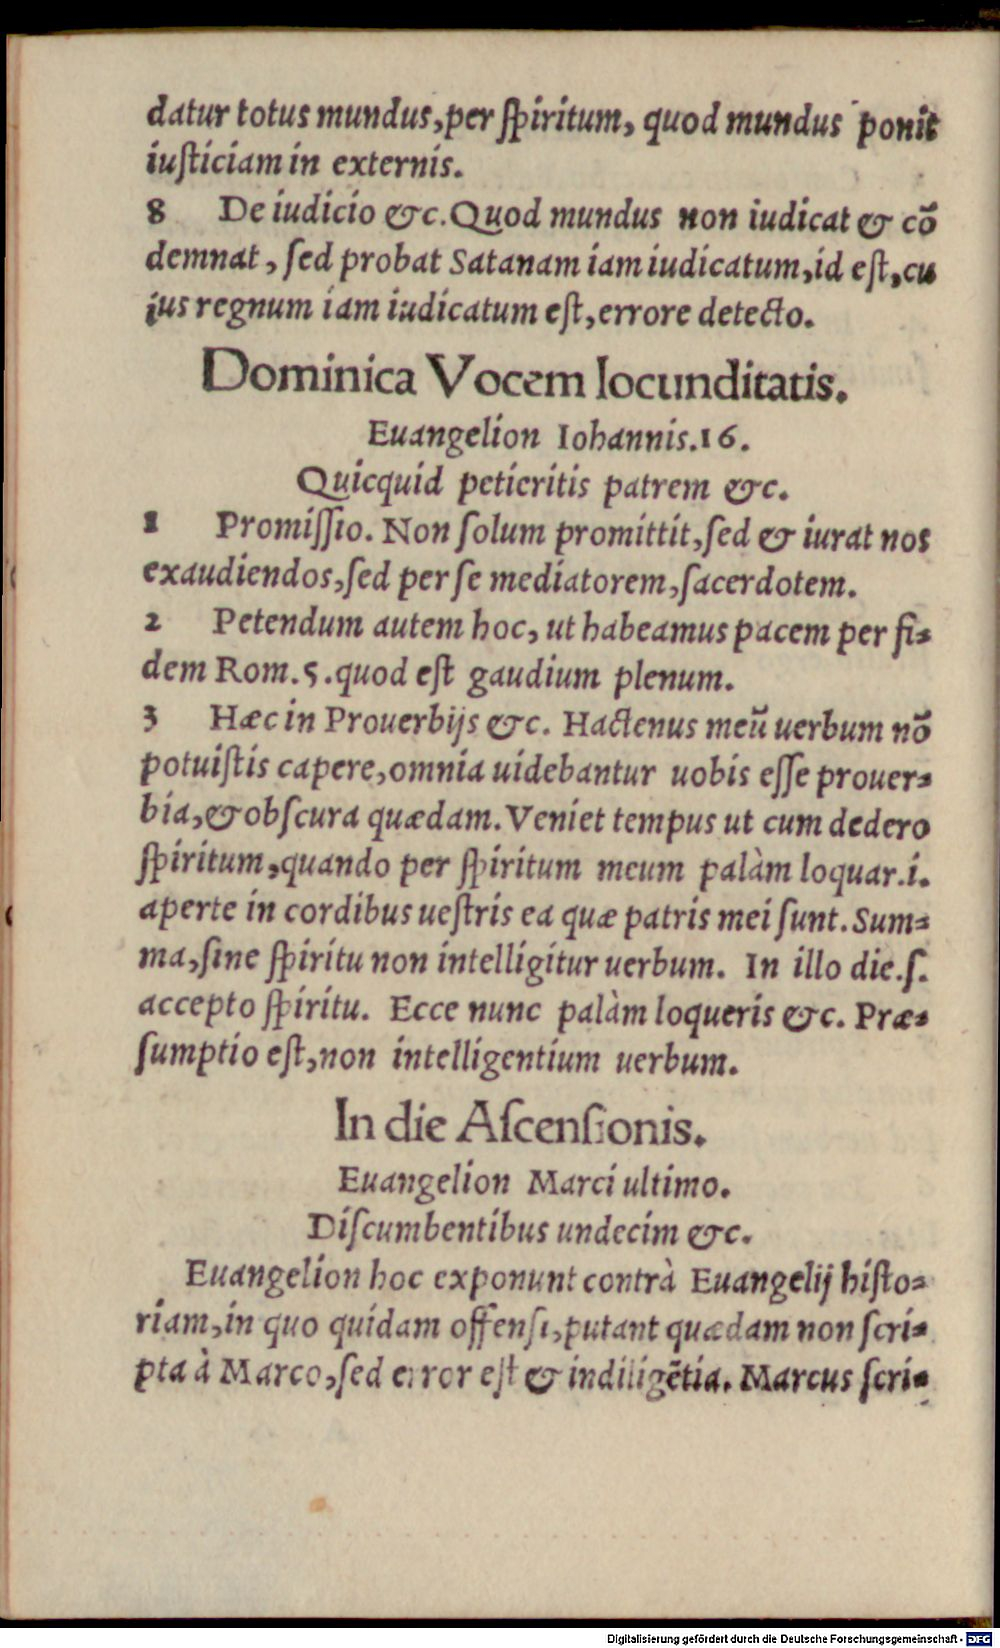 datur totus mundus, per ſpiritum, quod mundus ponit
iuſticiam in externis.
8 De iudicio &c. Quod mundus non iudicat & cõ
demnat, ſed probat Satanam iam iudicatum, id eſt, cu
ius regnum iam iudicatum eſt, errore detecto.
Dominica Vocem Iocunditatis.
Euangelion Iohannis.16.
Quicquid petieritis patrem &c.
1 Promiſſio. Non ſolum promittit, ſed & iurat nos
exaudiendos, ſed per ſe mediatorem, ſacerdotem.
2 Petendum autem hoc, ut habeamus pacem per fi⸗
dem Rom.5. quod eſt gaudium plenum.
3 Hæc in Prouerbijs &c. Hactenus meũ uerbum nõ
potuiſtis capere, omnia uidebantur uobis eſſe prouer⸗
bia, & obſcura quædam. Veniet tempus ut cum dedero
ſpiritum, quando per ſpiritum meum palàm loquar.i.
aperte in cordibus ueſtris ea quæ patris mei ſunt. Sum⸗
ma, ſine ſpiritu non intelligitur uerbum. In illo die.ſ.
accepto ſpiritu. Ecce nunc palàm loqueris &c. Præ⸗
ſumptio eſt, non intelligentium uerbum.
In die Aſcenſionis.
Euangelion Marci ultimo.
Diſcumbentibus undecim &c.
Euangelion hoc exponunt contrà Euangelij hiſto⸗
riam, in quo quidam offenſi, putant quædam non ſcri⸗
pta à Marco, ſed error eſt & indiligẽtia. Marcus ſcri⸗
Digitalisierung gefördert durch die Deutsche Forschungsgemeinschaft - DFG